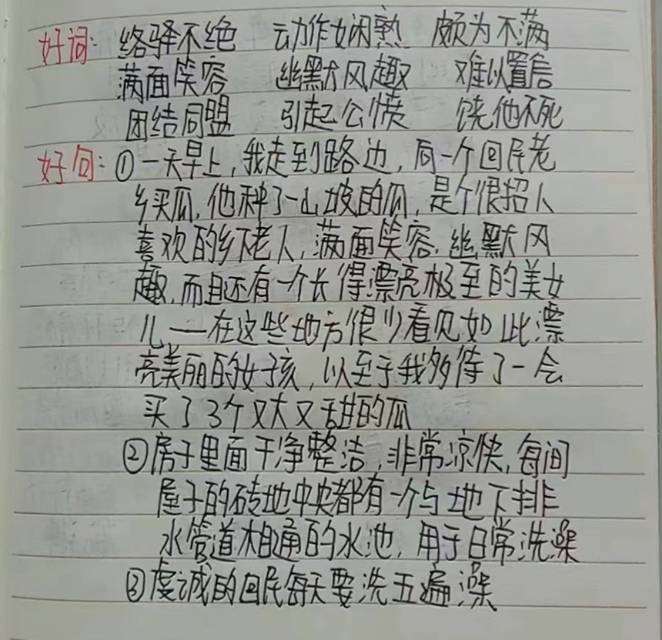 好词: 络驿不绝 动作娴熟 颇为不满
满面笑容 幽默风趣 难以置信
团结同盟 引起公愤 饶他不死
好句: ①一天早上,我走到路边,向一个回民老
乡买瓜,他种了一山坡的瓜,是个很招人
喜欢的乡下老人,满面笑容,幽默风
趣,而且还有一个长得漂亮极至的美女
儿——在这些地方很少看见如此漂
亮美丽的女孩,以至于我多待了一会
买了3个又大又甜的瓜
②房子里面干净整洁,非常凉快,每间
屋子的砖地中央都有一个与地下排
水管道相通的水池,用于日常洗澡
③虔诚的回民每天要洗五遍澡